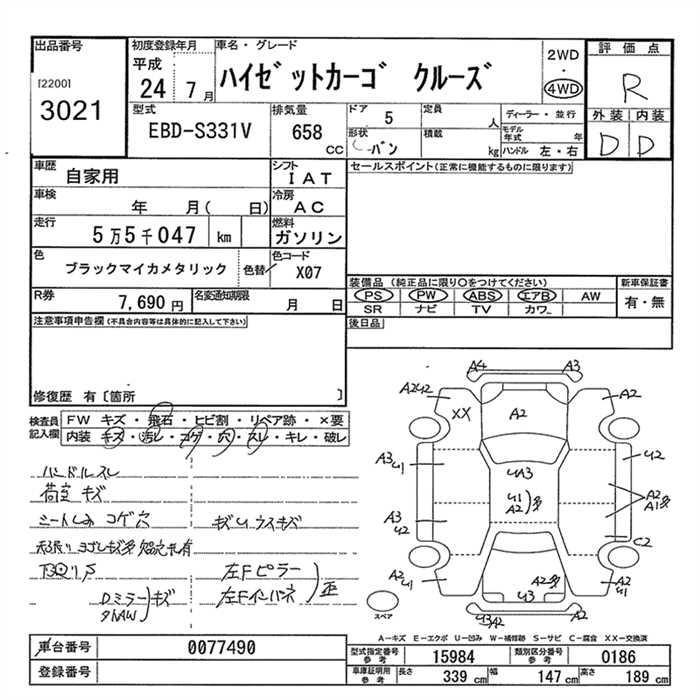 出品番号
[2200]
3021
初度登録年月
平成
24 7月
車名・グレード
ハイゼットカーゴ クルーズ
2WD
・
4WD
評価点
R
外装 内装
D D
型式
EBD-S331V
排気量
658
CC
ドア
5
定員
人
形状
バン
積載
kg
ディーラー・並行
モデル年式
年
ハンドル 左・右
車歴
自家用
シフト
IAT
車検
年 月( 日)
冷房
AC
走行
5万5千047 km
燃料
ガソリン
色
ブラックマイカメタリック
色替
色コード
X07
R券
7,690円
名変通知期限
月 日
セールスポイント(正常に機能するものに限ります)
装備品(純正品に限り○をつけてください)
PS PW ABS エアB AW
SR ナビ TV カワ
新車保証書
有・無
後日品
注意事項申告欄(不具合内容等は具体的に記入して下さい)
修復歴 有〔箇所 〕
検査員
記入欄
FW キズ・飛石・ヒビ割・リペア跡・×要
内装 キズ・汚レ・コゲ・穴・スレ・キレ・破レ
ハンドルスレ
荷室 キズ
シートしみ コゲ穴
キズU ウスキズ
Dミラー キズ
左Fピラー
左Fインパネ
歪
A4
A3
A2U2
A2
XX
A2
A3
U1
U2
UA3
U1
A2
多
A2
A1多
A3
U2
C2
A2
U1
A2多
U3
A2
U1
U3A2
A2
スペア
A-キズ E-エクボ U-凹み W-補修跡 S-サビ C-腐食 XX-交換済
車台番号
0077490
登録番号
型式指定番号
参考
15984
類別区分番号
参考
0186
車庫証明用
参考
長さ
339 cm
幅
147 cm
高さ
189 cm